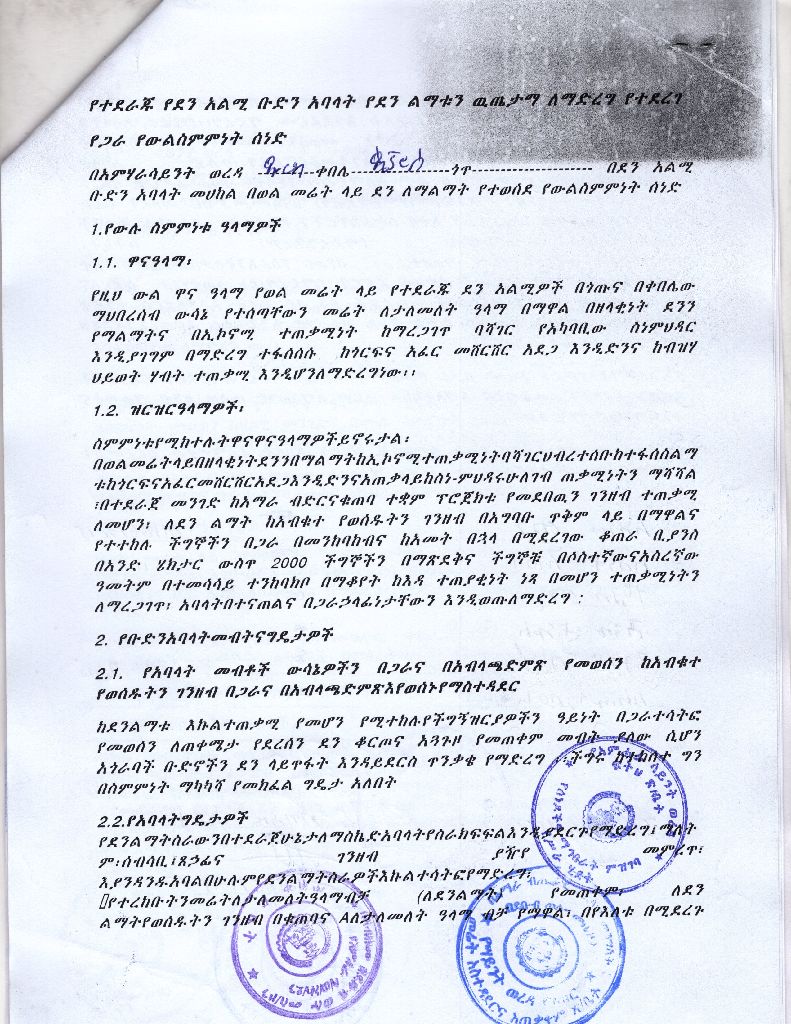 የተደራጁ የደን አልሚ ቡድን አባላት የደን ልማቱን ዉጤታማ ለማድረግ የተደረገ
የጋራ የውልስምምነት ሰነድ
በአምሃራሳይንት ወረዳ ቀበሌ ጎጥ---------------------- በደን አልሚ
ቡድን አባላት መሀከል በወል መሬት ላይ ደን ለማልማት የተወሰደ የውልስምምነት ሰነድ
1.የውሉ ስምምነቱ ዓላማዎች
1.1. ዋናዓላማ፡
የዚህ ውል ዋና ዓላማ የወል መሬት ላይ የተደራጁ ደን አልሚዎች በጎጡና በቀበሌው
ማህበረሰብ ውሳኔ የተሰጣቸውን መሬት ለታለመለት ዓላማ በማዋል በዘላቂነት ደንን
የማልማትና በኢኮኖሚ ተጠቃሚነት ከማረጋገጥ ባሻገር የአካባቢው ስነምህዳር
እንዲያገግም በማድረግ ተፋሰሰሱ ከጎርፍና አፈር መሸርሸር አደጋ እንዲድንና ከብዝሃ
ህይወት ሃብት ተጠቃሚ እንዲሆንለማድረግነው፡፡
1.2. ዝርዝርዓላማዎች፡
ስምምነቱየሚከተሉትዋናዋናዓላማዎችይኖሩታል፡
በወልመሬትላይበዘላቂነትደንንበማልማትከኢኮኖሚተጠቃሚነትባሻገርህብረተሰቡከተፋሰስልማ
ቱከጎርፍናአፈርመሸርሸርአደጋእንዲድንናአጠቃላይከስነ-ምህዳሩሁለገብ ጠቃሚነትን ማሻሻል
፣በተደራጀ መንገድ ከአማራ ብድርናቁጠባ ተቋም ፕሮጀክቱ የመደበዉን ገንዘብ ተጠቃሚ
ለመሆን፣ ለደን ልማት ከአብቁተ የወሰዱትን ገንዘብ በአግባቡ ጥቅም ላይ በማዋልና
የተተከሉ ችግኞችን በጋራ በመንከባከብና ከአመት በኋላ በሚደረገው ቆጠራ ቢያንስ
በአንድ ሄክታር ውስጥ 2000 ችግኞችን በማጽደቅና ችግኞቹ በሶስተኛውናአስረኛው
ዓመትም በተመሳሳይ ተንከባክቦ በማቆየት ከእዳ ተጠያቂነት ነጻ በመሆን ተጠቃሚነትን
ለማረጋገጥ፣ አባላትበተናጠልና በጋራኃላፊነታቸውን እንዲወጡለማድረግ ፡
2. የቡድንአባላትመብትናግዴታዎች
2.1. የአባላት መብቶች ውሳኔዎችን በጋራና በአብላጫድምጽ የመወሰን ከአብቁተ
የወሰዱትን ገንዘብ በጋራና በአብላጫድምጽእየወሰኑየማስተዳደር
ከደንልማቱ እኩልተጠቃሚ የመሆን የሚተከሉየችግኝዝርያዎችን ዓይነት በጋራተሳትፎ
የመወሰን ለጠቀሜታ የደረሰን ደን ቆርጦና አጓጉዞ የመጠቀም መብት ያለው ሲሆን
አጎራባች ቡድኖችን ደን ላይጥፋት እንዳይደርስ ጥንቃቄ የማድረግ ፡፡ችግሩ ከተከሰተ ግን
በስምምነት ማካካሻ የመክፈል ግዴታ አለበት
2.2.የአባላትግዴታዎች
የደንልማትስራውንበተደራጀሁኔታለማስኬድአባላትየስራክፍፍልእንዲያደርጉየማድረግ፣ማለት
ም፡ሰብሳቢ፣ጸኃፊና ገንዘብ ያዥየ መምረጥ፣
እያንዳንዱአባልበሁሉምየደንልማትስራዎችእኩልተሳትፎየማድረግ፣
የተረከቡትንመሬትለታለመለትዓላማብቻ (ለደንልማት) የመጠቀም፣ ለደን
ልማትየወሰዱትን ገንዘብ በቁጠባና Aለታለመለት ዓላማ ብቻ የማዋል፣ በየእለቱ በሚደረጉ